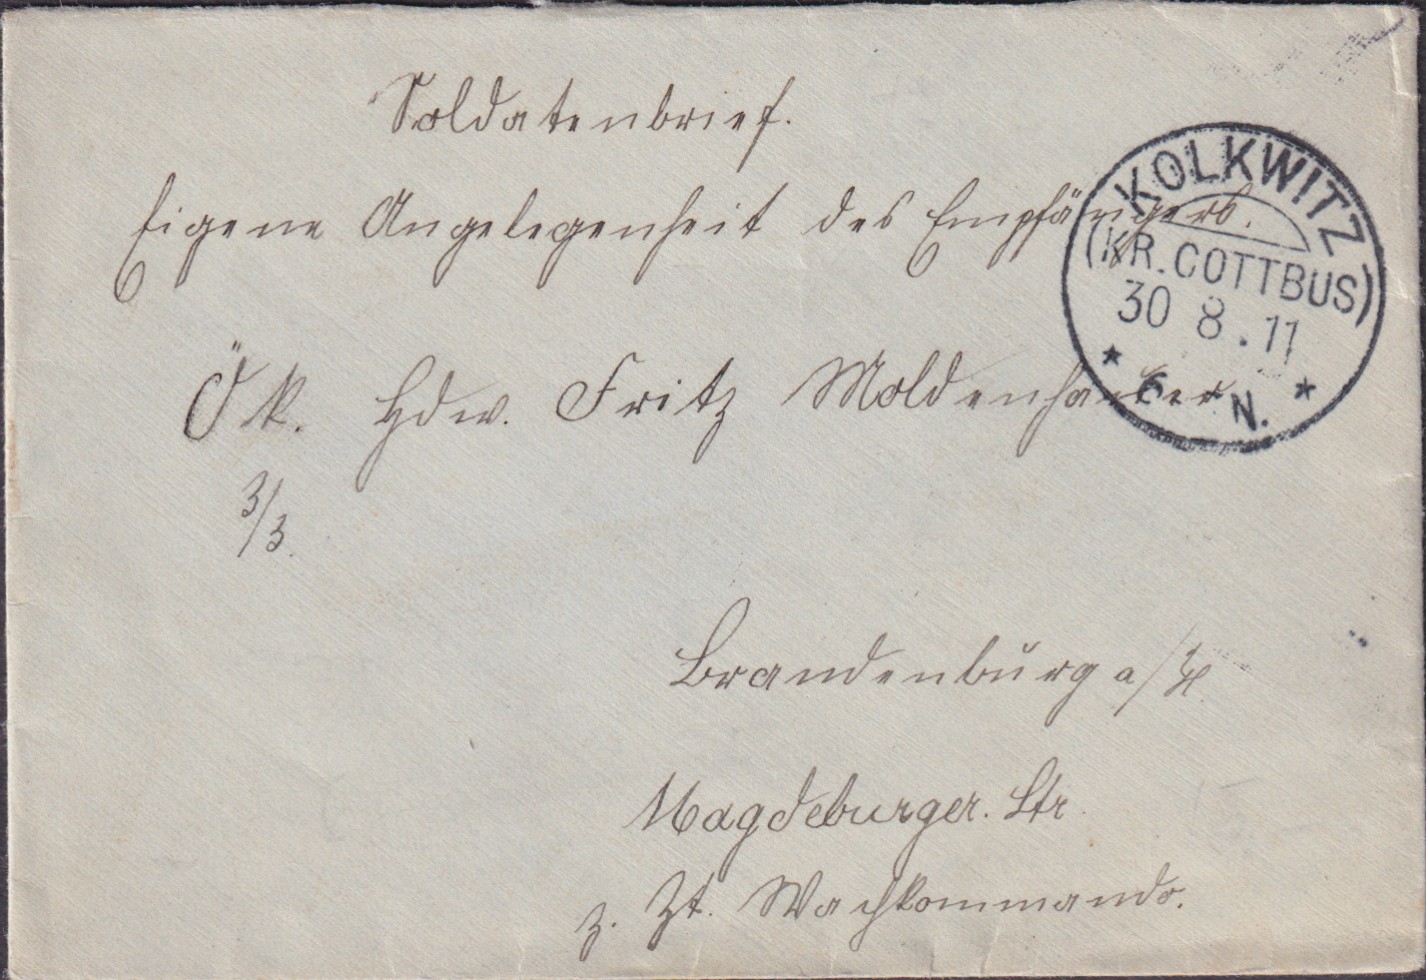 Soldatenbrief.
Eigene Angelegenheit des Empfängers.
KOLKWITZ
(KR. COTTBUS)
30 8.11
* 6- N. *
Ök. Hdw. Fritz Moldenhauer
3/3.
Brandenburg a/H.
Magdeburger. Str
z. Zt. Wachkommando.